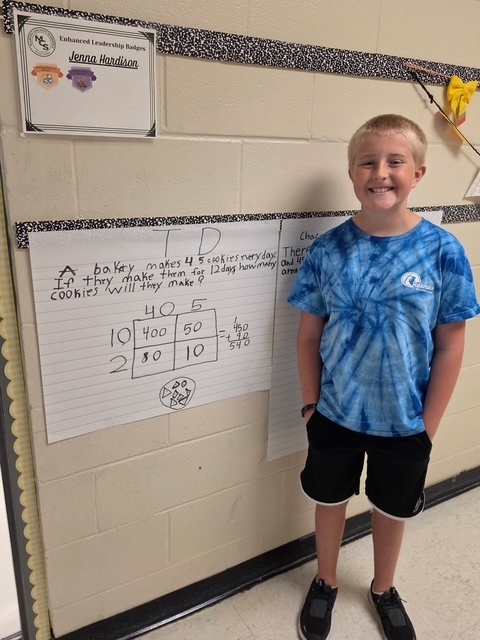 MCS
Enhanced Leadership Badges
Jenna Hardison
T D
A bakery makes 45 cookies every day.
If they make them for 12 days how many
cookies will they make?
40 5
10 400 50
2 80 10
= 450
+ 90
540
1
Ther
and 4
area